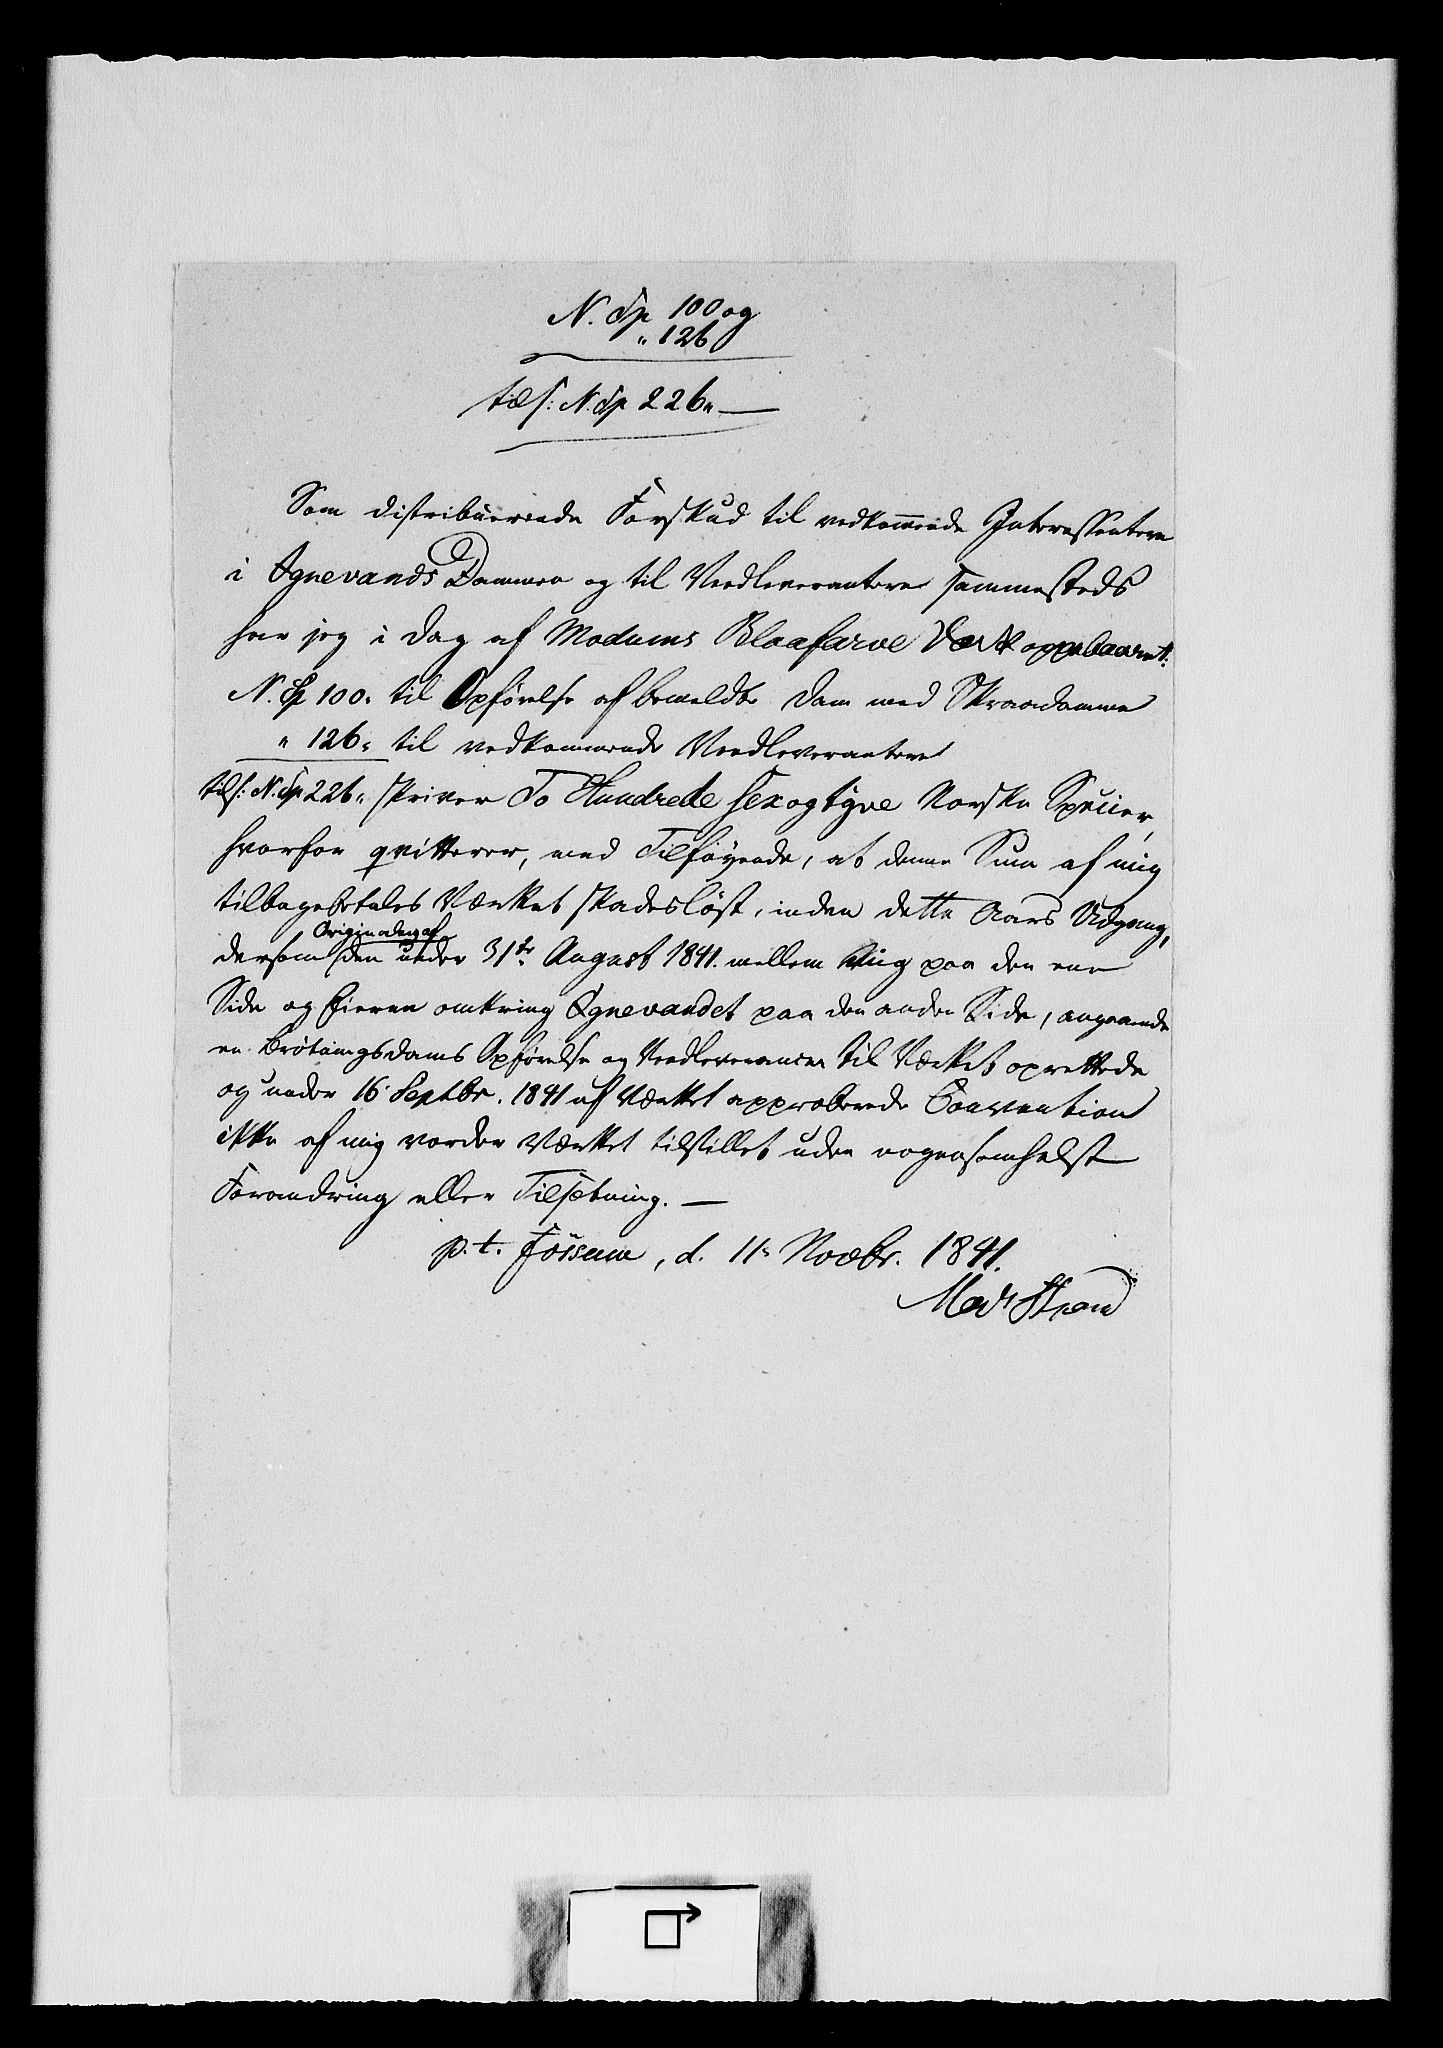 N. Sp 100 og
" 126
tils: N. Sp 226 " —
Som distribuerende Forskud til vedkommende Interessentere
i Ignevands Dammen og til Veedleverantere sammesteds
har jeg i Dag af Modums Blaafarve Værk oppebaaret:
N. Sp 100 " til Opførelse af bemeldte Dam med Skraadamme
" 126 " til vedkommende Veedleverantere
tils: N. Sp 226 " skriver To Hundrede sexogtyve Norske Specier,
hvorfor qvitterer, med Tilføyende, at denne Sum af mig
tilbagebetales Værket skadesløst, inden dette Aars Udgang,
Originalen af
dersom den under 31te August 1841. mellem Mig paa den ene
Side og Eierne omkring Ignevandet paa den anden Side, angaaende
en Brötningsdams Opførelse og Veedleverancer til Værket oprettede
og under 16 Septbr. 1841 af Værket approberede Convention
ikke af mig vorder Værket tilstillet uden nogensomhelst
Forandring eller Tilsætning. —
p. t. Fossum, d. 11 " Novbr. 1841.
Mads Strand